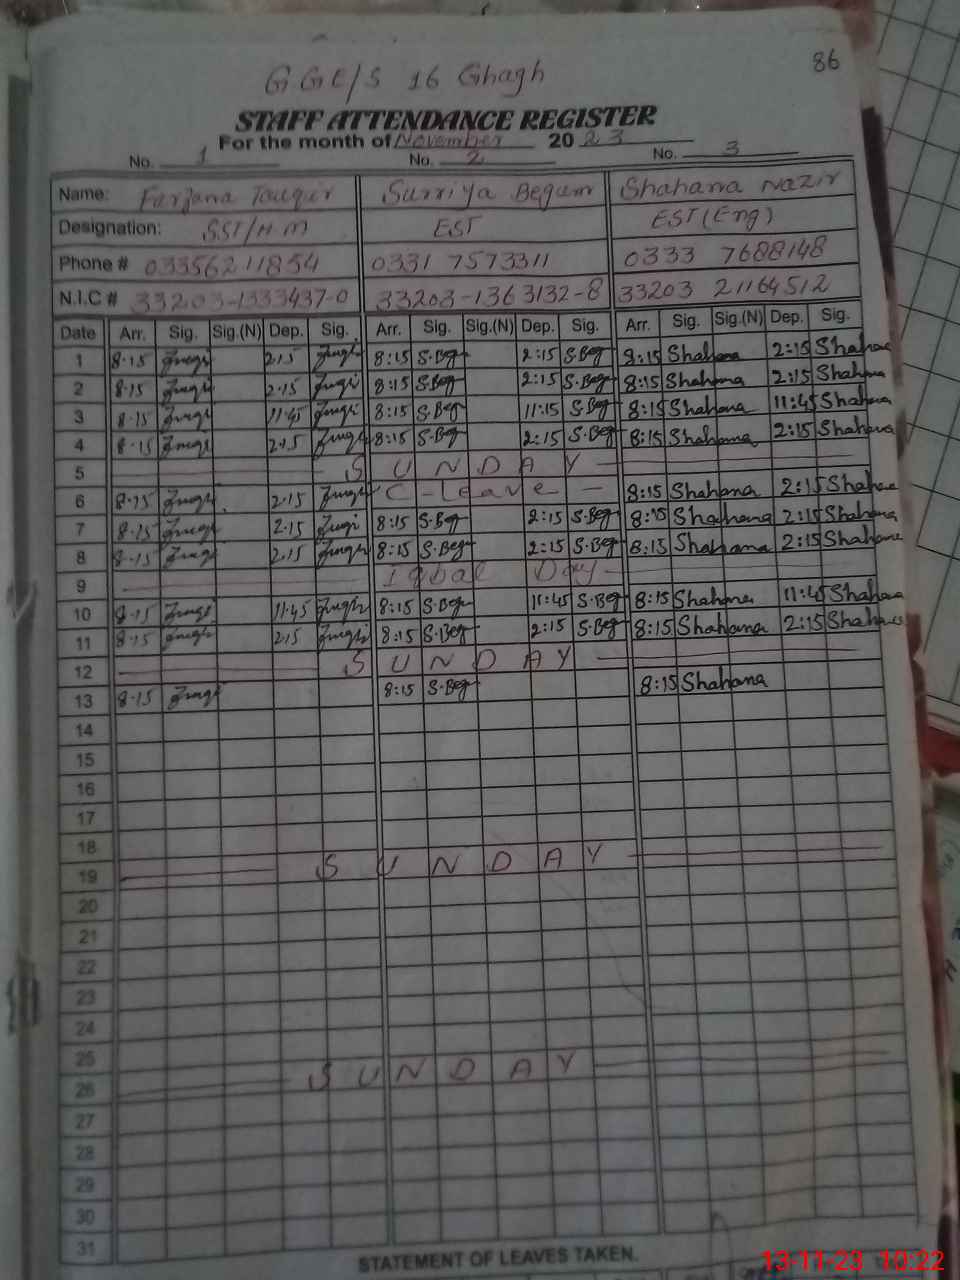 86
G G E/S 16 Ghagh
STAFF ATTENDANCE REGISTER
For the month of November 20 23
No. 1 No. 2 No. 3
Name: Farzana Tauqir Surriya Begum Shahana Nazir
Designation: SST/H M EST EST (Eng)
Phone # 03356211854 0331 7573311 0333 7688148
N.I.C # 33203-1333437-0 33203-1363132-8 33203 21164512
Date Arr. Sig. Sig.(N) Dep. Sig. Arr. Sig. Sig.(N) Dep. Sig. Arr. Sig. Sig.(N) Dep. Sig.
1 8-15 2.15 8:15 S.Beg 2:15 S.Beg 8:15 Shahana 2:15 Shahana
2 8-15 2.15 8:15 S.Beg 2:15 S.Beg 8:15 Shahana 2:15 Shahana
3 8-15 11.45 8:15 S.Beg 11:15 S.Beg 8:15 Shahana 11:45 Shahana
4 8-15 2.15 8:15 S.Beg 2:15 S.Beg 8:15 Shahana 2:15 Shahana
5 S U N D A Y
6 8-15 2.15 C-leave 8:15 Shahana 2:15 Shahana
7 8-15 2.15 8:15 S.Beg 2:15 S.Beg 8:15 Shahana 2:15 Shahana
8 8-15 2.15 8:15 S.Beg 2:15 S.Beg 8:15 Shahana 2:15 Shahana
9 Iqbal Day
10 8-15 11.45 8:15 S.Beg 11:45 S.Beg 8:15 Shahana 11:45 Shahana
11 8-15 2.15 8:15 S.Beg 2:15 S.Beg 8:15 Shahana 2:15 Shahana
12 S U N D A Y
13 8-15 8:15 S.Beg 8:15 Shahana
14
15
16
17
18
19 S U N D A Y
20
21
22
23
24
25
26 S U N D A Y
27
28
29
30
31
STATEMENT OF LEAVES TAKEN.
13-11-23 10:22